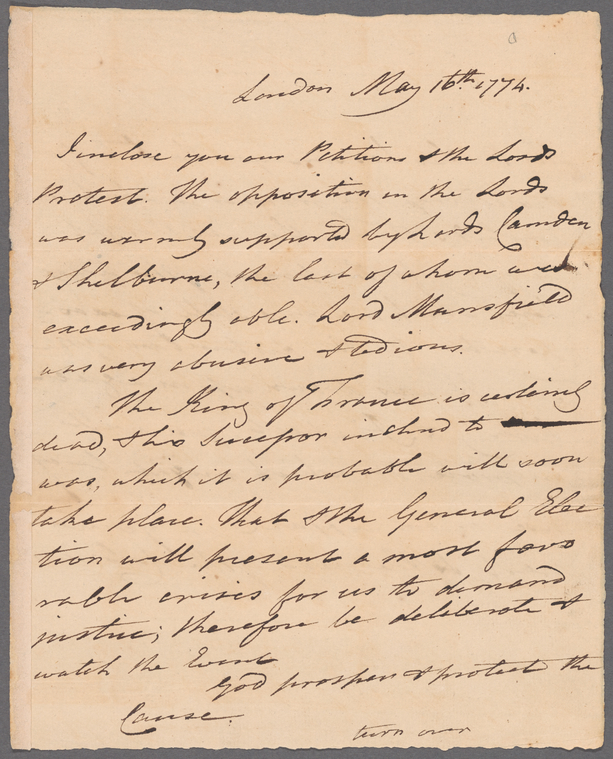 London May 16th. 1774.
I inclose you our Petitions & the Lords
Protest. The opposition in the Lords
was warmly supported by Lords Camden
& Shelburne, the last of whom was
exceedingly able. Lord Mansfield
was very abusive & tedious.
The King of France is certainly
dead, & his Successor inclind to
war, which it is probable will soon
take place. That & the General Elec
tion will present a most favo
rable crisis for us to demand
justice; therefore be deliberate &
watch the Event
God prosper & protect the
Cause.
turn over